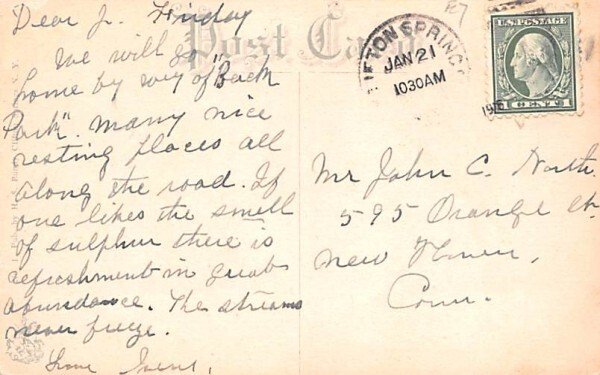 Dear J. Friday
Post Card
We will go
home by way of "Back
Park". Many nice
resting places all
along the road. If
one likes the smell
of sulphur there is
refreshment in great
abundance. The streams
never freeze.
Love
CLIFTON SPRINGS
JAN 21
1030AM
U.S. POSTAGE
1 CENT 1
Mr John C. North
595 Orange St.
New Haven,
Conn.